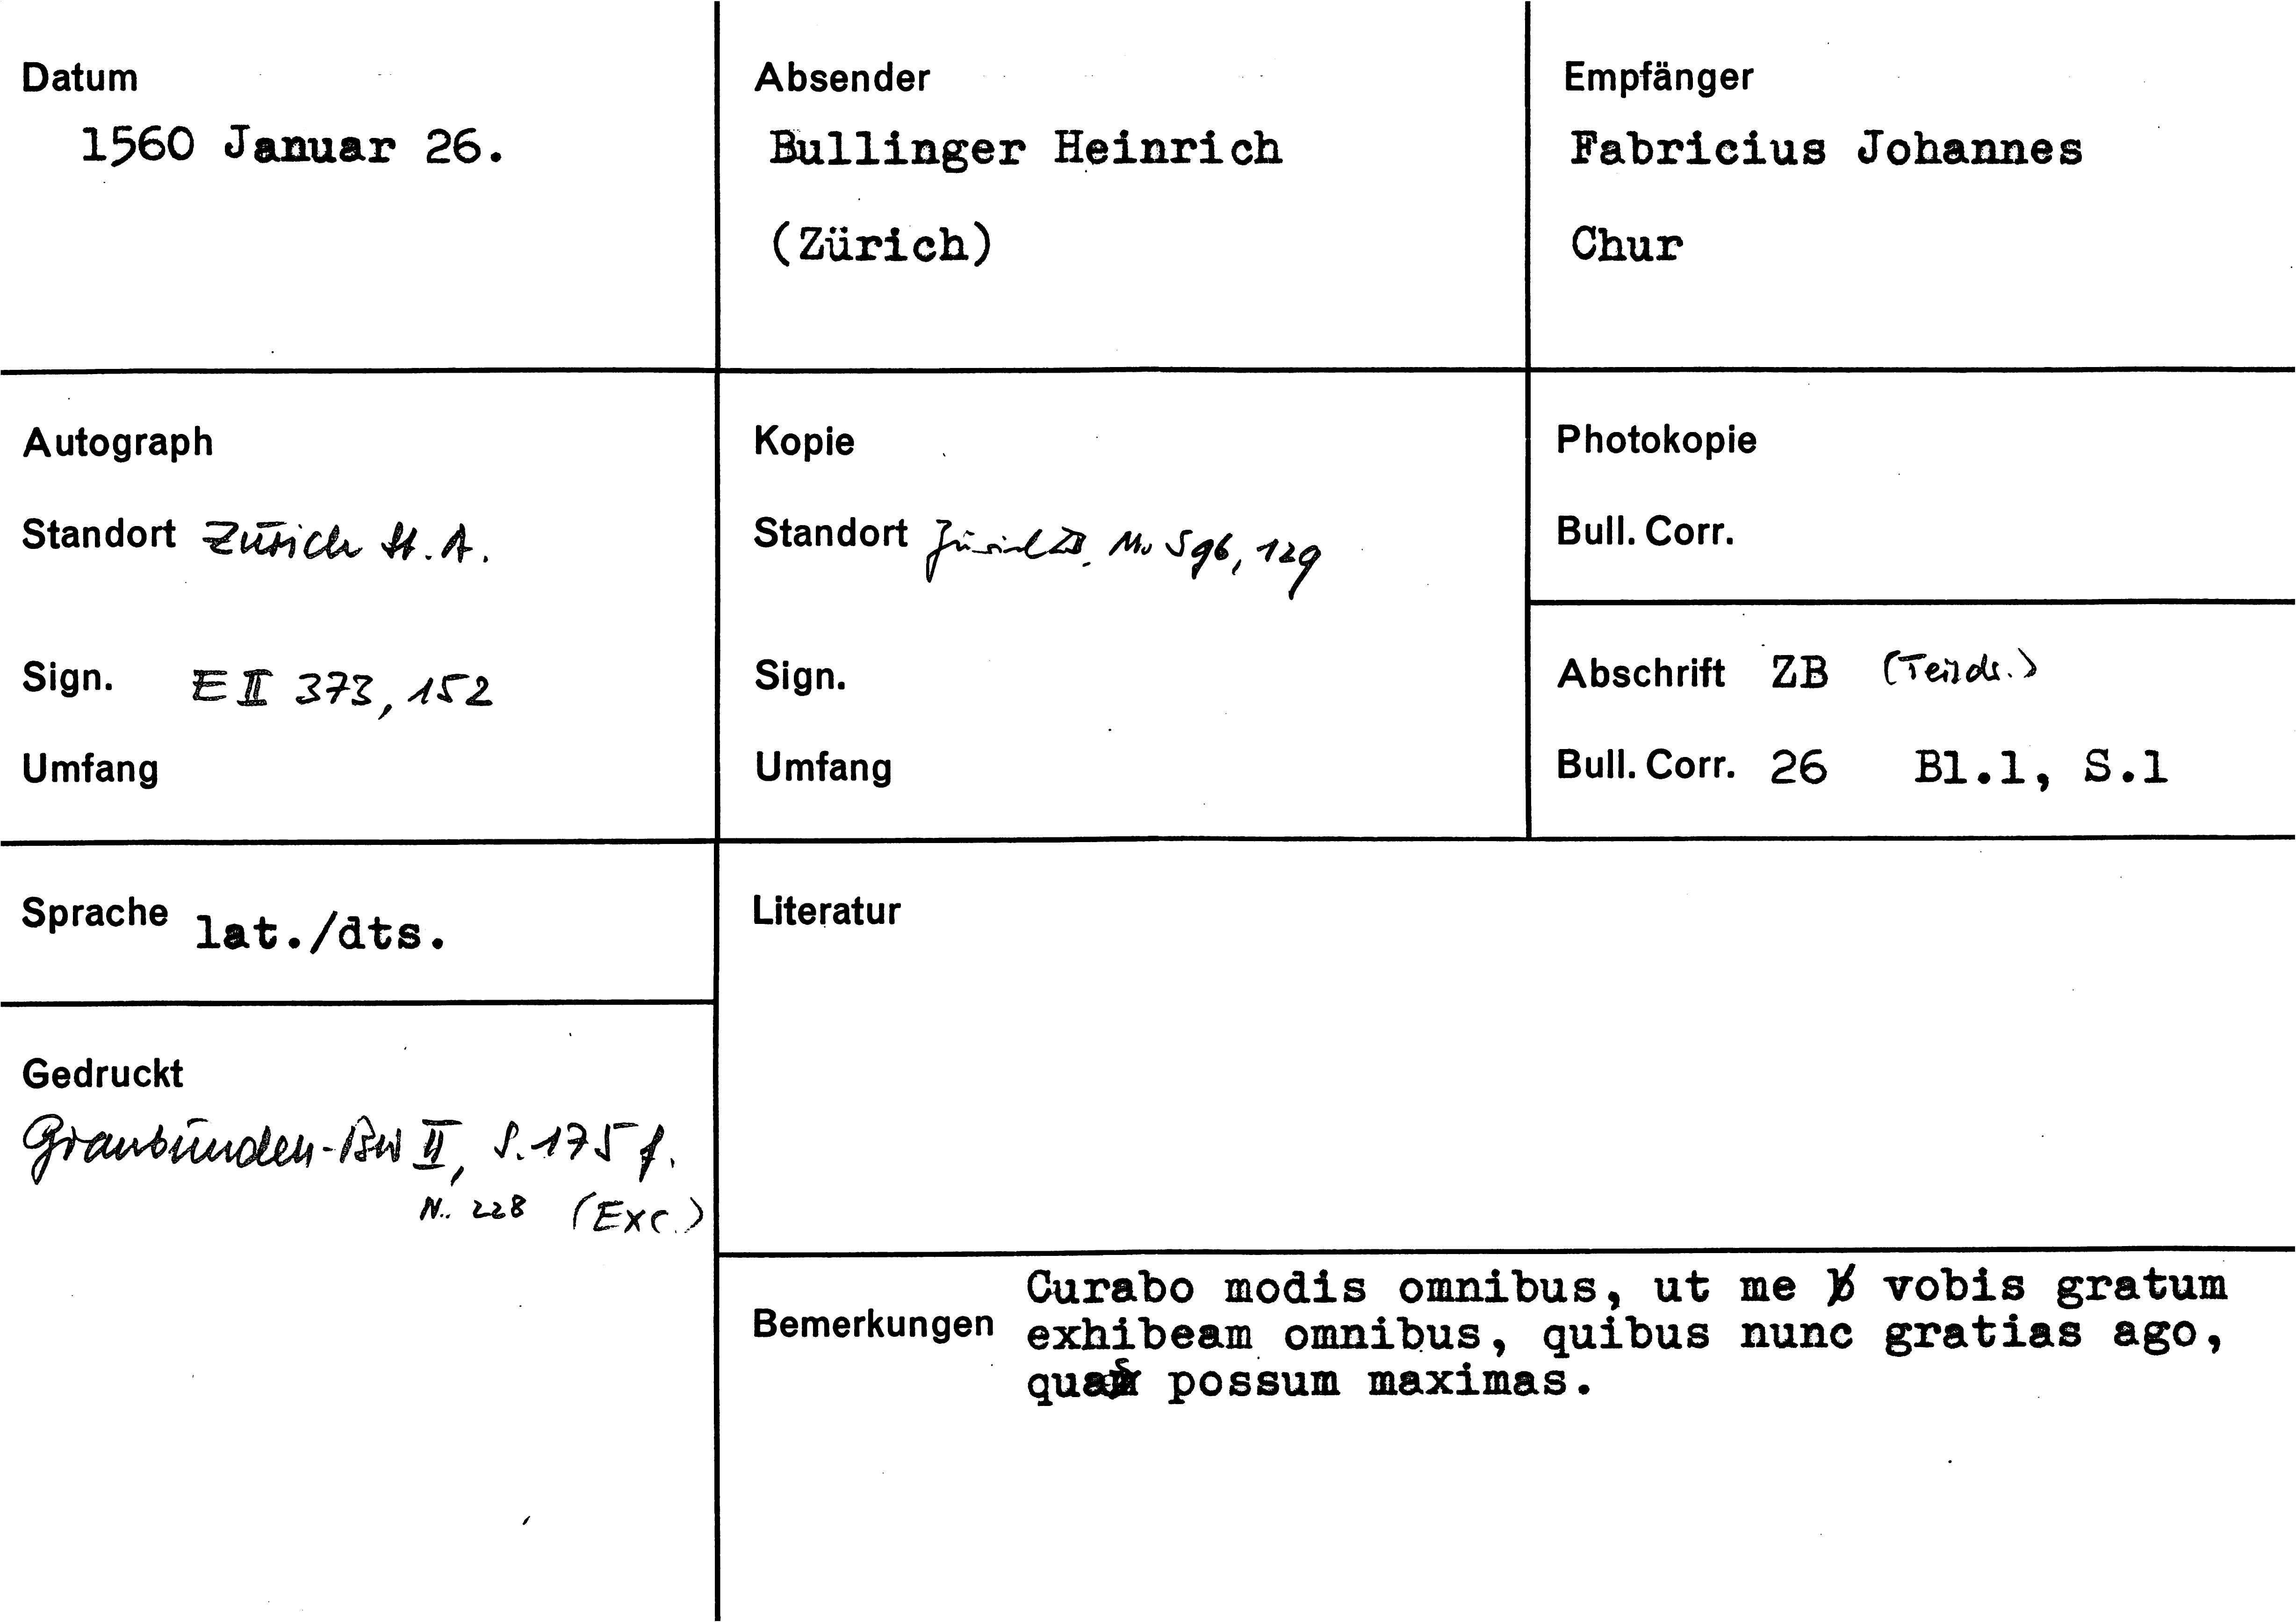 Datum
1560 Januar 26.
Absender
Bullinger Heinrich
(Zürich)
Empfänger
Fabricius Johannes
Chur
Autograph
Standort Zürich St. A.
Sign. E II 373, 152
Umfang
Kopie
Standort Zürich ZB. Ms S 96, 129
Sign.
Umfang
Photokopie
Bull. Corr.
Abschrift ZB (Teildr.)
Bull. Corr. 26 Bl.1, S.1
Sprache lat./dts.
Literatur
Gedruckt
Graubünden-BW II, S. 175 f.
N.. 228 (Exc.)
Bemerkungen
Curabo modis omnibus, ut me vobis gratum
exhibeam omnibus, quibus nunc gratias ago,
quas possum maximas.